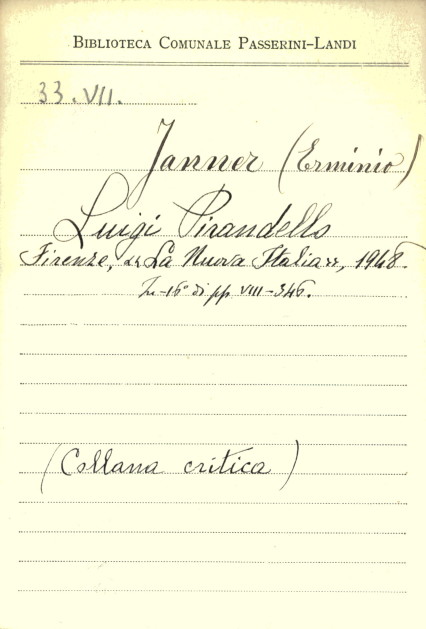 BIBLIOTECA COMUNALE PASSERINI-LANDI
33.VII.
Janner (Erminio)
Luigi Pirandello
Firenze, «La Nuova Italia», 1948.
In-16° di pp VIII-346.
(Collana critica)